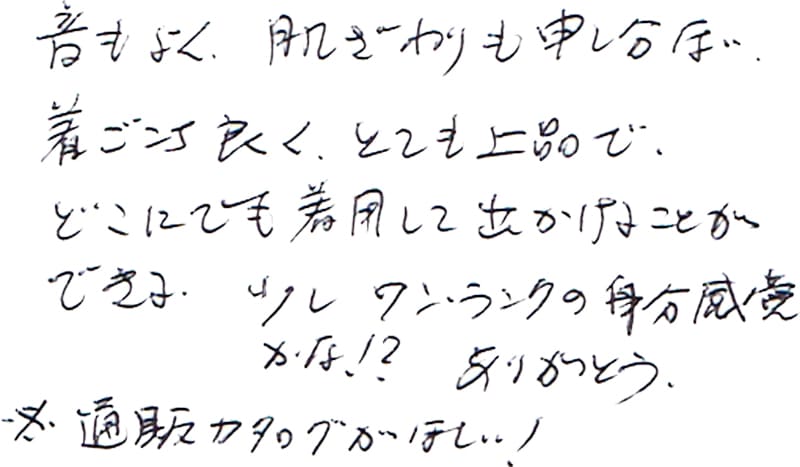 音もよく、肌ざわりも申し分ない、
着ごこち良く、とても上品で、
どこにでも着用して出かけることが
できる。少し ワン・ランクの身分感覚
かな!? ありがとう。
※ 通販カタログがほしい!